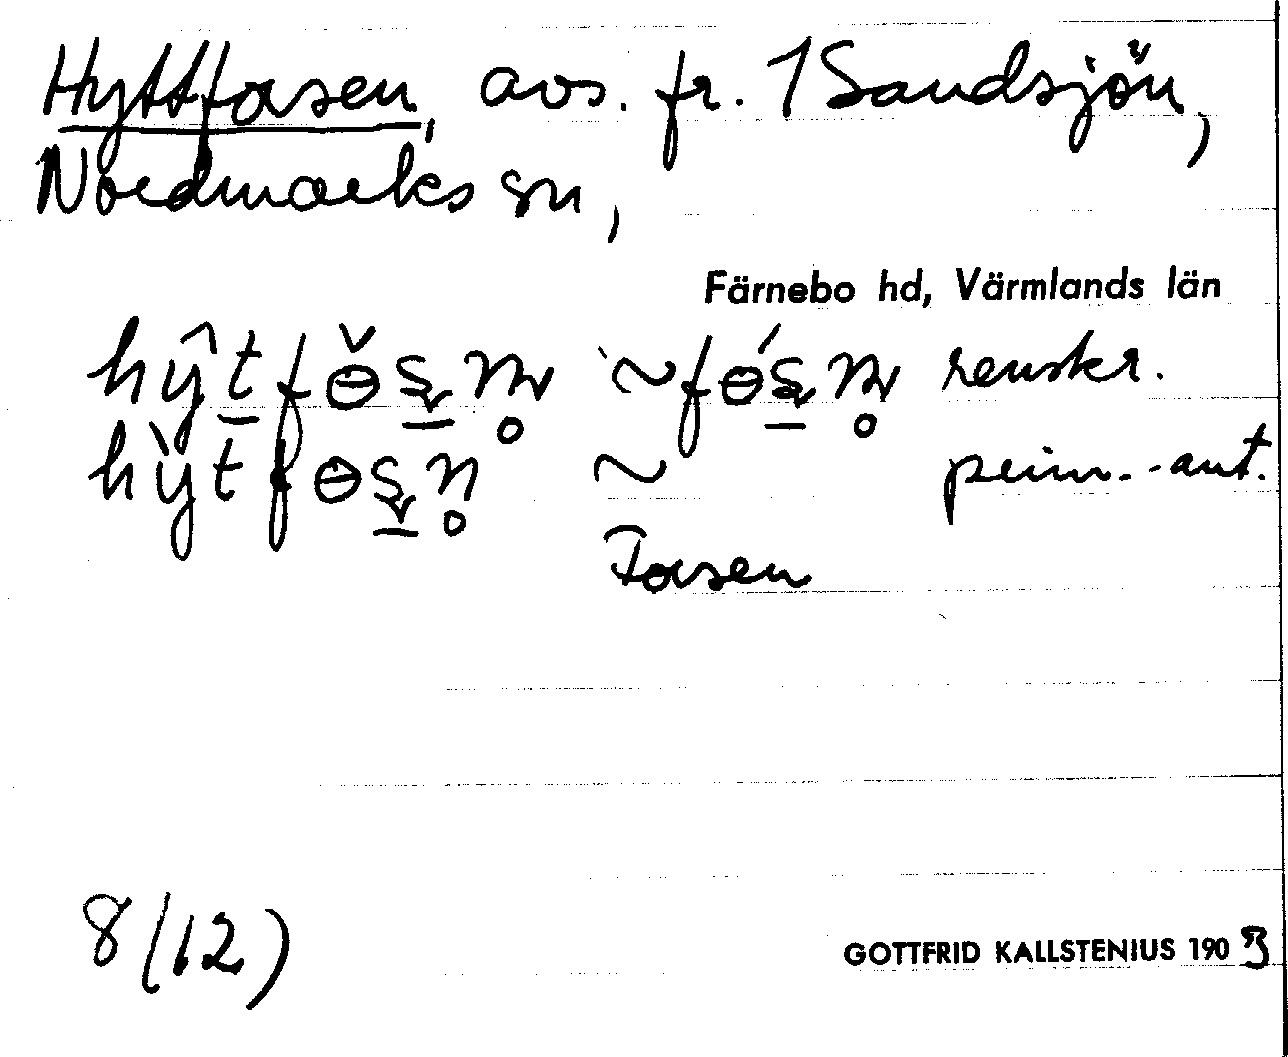 Hyttforsen, avs. fr. 1 Sandsjön,
Nordmarks sn,
Färnebo hd, Värmlands län
renskr.
prim.-ant.
Forsen
8 (12)
GOTTFRID KALLSTENIUS 1903